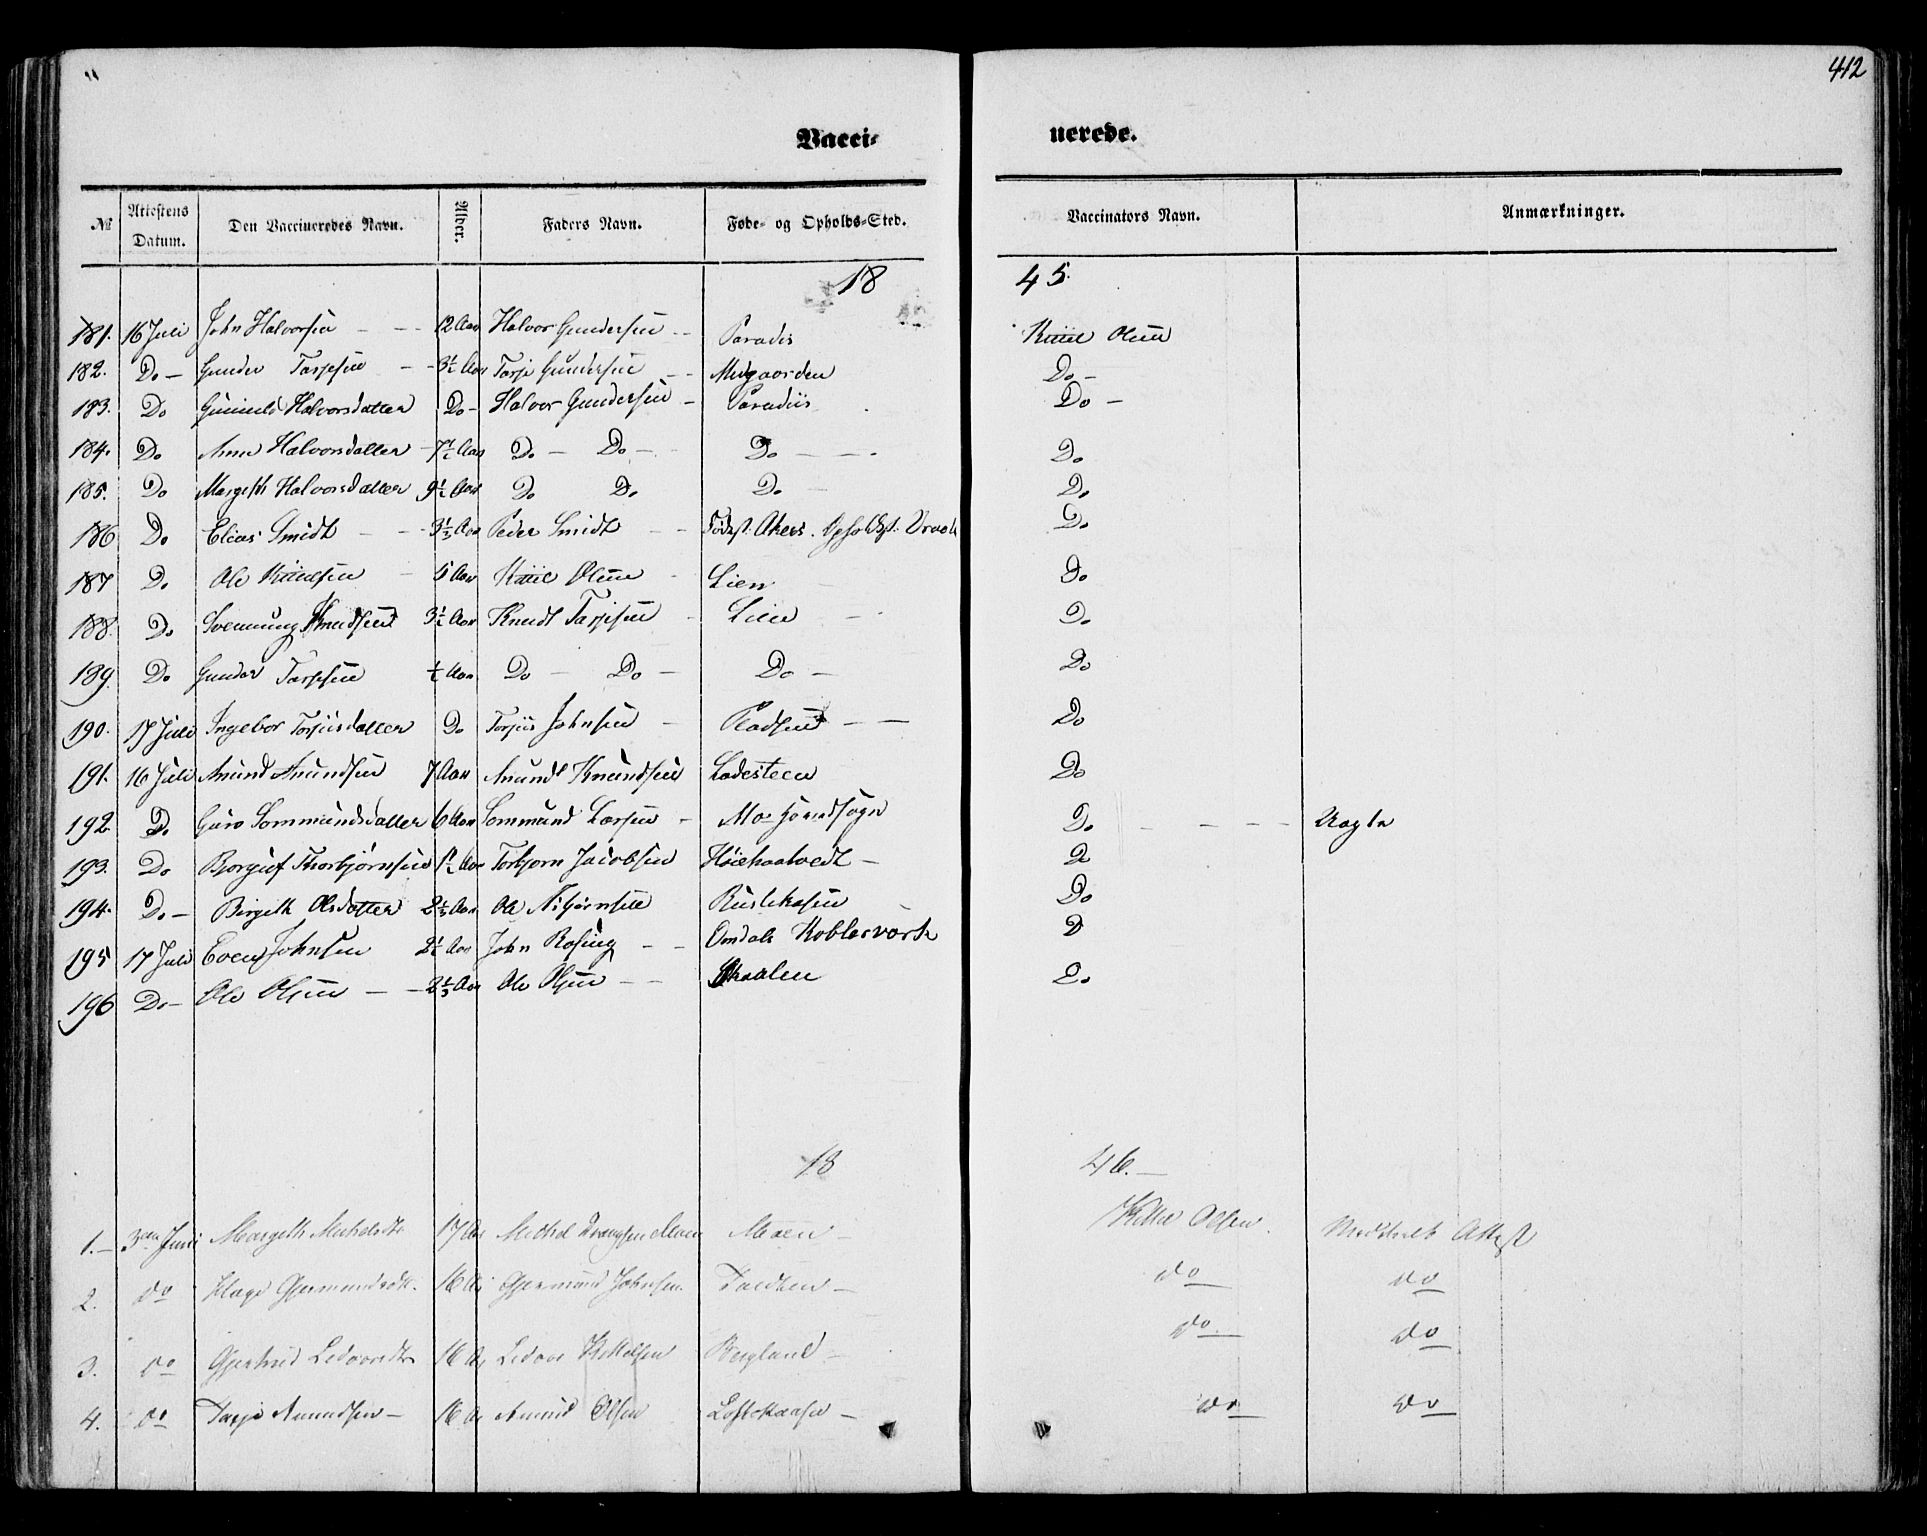 412
Vacci- nerede.
№ Attestens Datum. Den Vaccineredes Navn. Alder. Faders Navn. Føde- og Opholds-Sted. Vaccinators Navn. Anmærkninger.
18 45.
181. 16 Juli John Halvorsen - - - 12 Aar Halvor Gundersen - - Paradis Olsen
182. Do - Gunder Tarjesen - - 3½ Aar Tarje Gundersen - - Midgaarden Do -
183. Do Gunnild Halvorsdatter Do - Halvor Gundersen - Paradiis Do -
184. Do Anne Halvorsdatter - 7½ Aar Do - Do - Do - - - Do
185. Do Margith Halvorsdatter 9½ Aar Do Do Do Do
186 Do Elias Smidt - - 3⅓ Aar Peder Smidt - - Fødest. Akers. Opholdsst. Do
187 Do Ole - 5 Aar Olsen - Lien Do
188. Do Svennung Knudsen 3½ Aar Knudt Tarjesen - Lien - Do
189. Do Gunder Tarjesen Aar Do - Do - Do - Do
190. 17 Juli Ingebor Torjusdatter Do Torjus Johnsen - Pladsen - - Do
191. 16 Juli Anund Anundsen 7 Aar Anund Knundsen Ladesteen Do
192. Do Guro Sommundsdatter 6 Aar Sommund Larsen - Mo Do - - - - Uægte
193. Do Bjorguf Thorbjørnsen 1½ Aar Torbjorn Jacobsen Høiekaatvedt - D
194. Do - Birgith Olsdatter 2⅓ Aar Ole Do
195 17 Juli Even Johnsen Aar John Rosing - - Omdals Kobberværk D
196 Do - Ole Olsen - - 2⅓ Aar Ole Olsen - - Skaalen Do
18 46. -
1. - 3die Juni Margith 17 Aar Michel Moen - Kittil Olsen. Attest
2. do Gjermundsdtr. 16 Aar Gjermund Johnsen. - do do
3. do Gjertrud Ledvorsdtr 16 Aar Ledvor Kittelsen Bergland - do do
4. do Tarje Anundsen - 16 Aar Anund Olsen Loftskaasa - do do